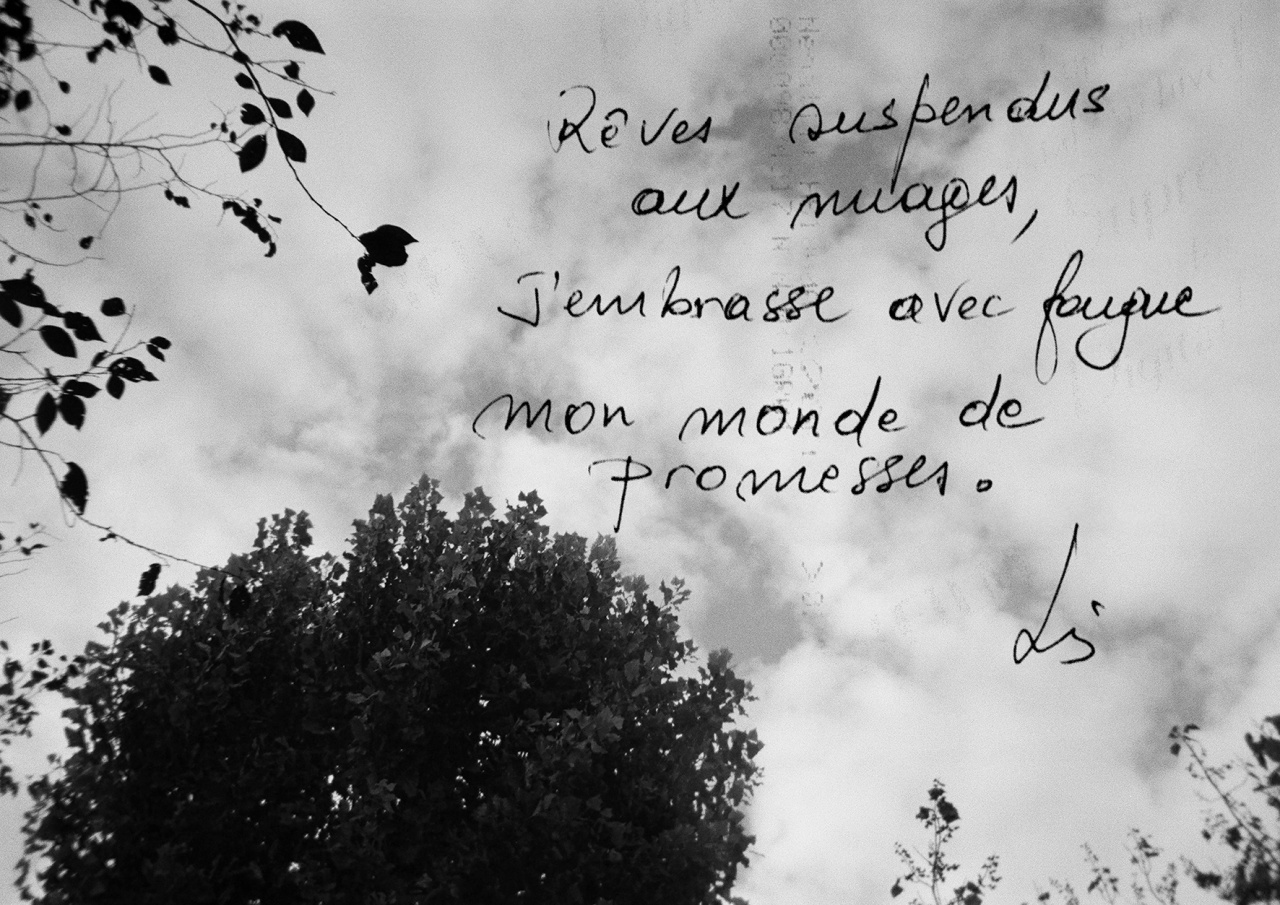 Rêves suspendus
aux nuages,
J'embrasse avec fougue
mon monde de
promesses.
Lis